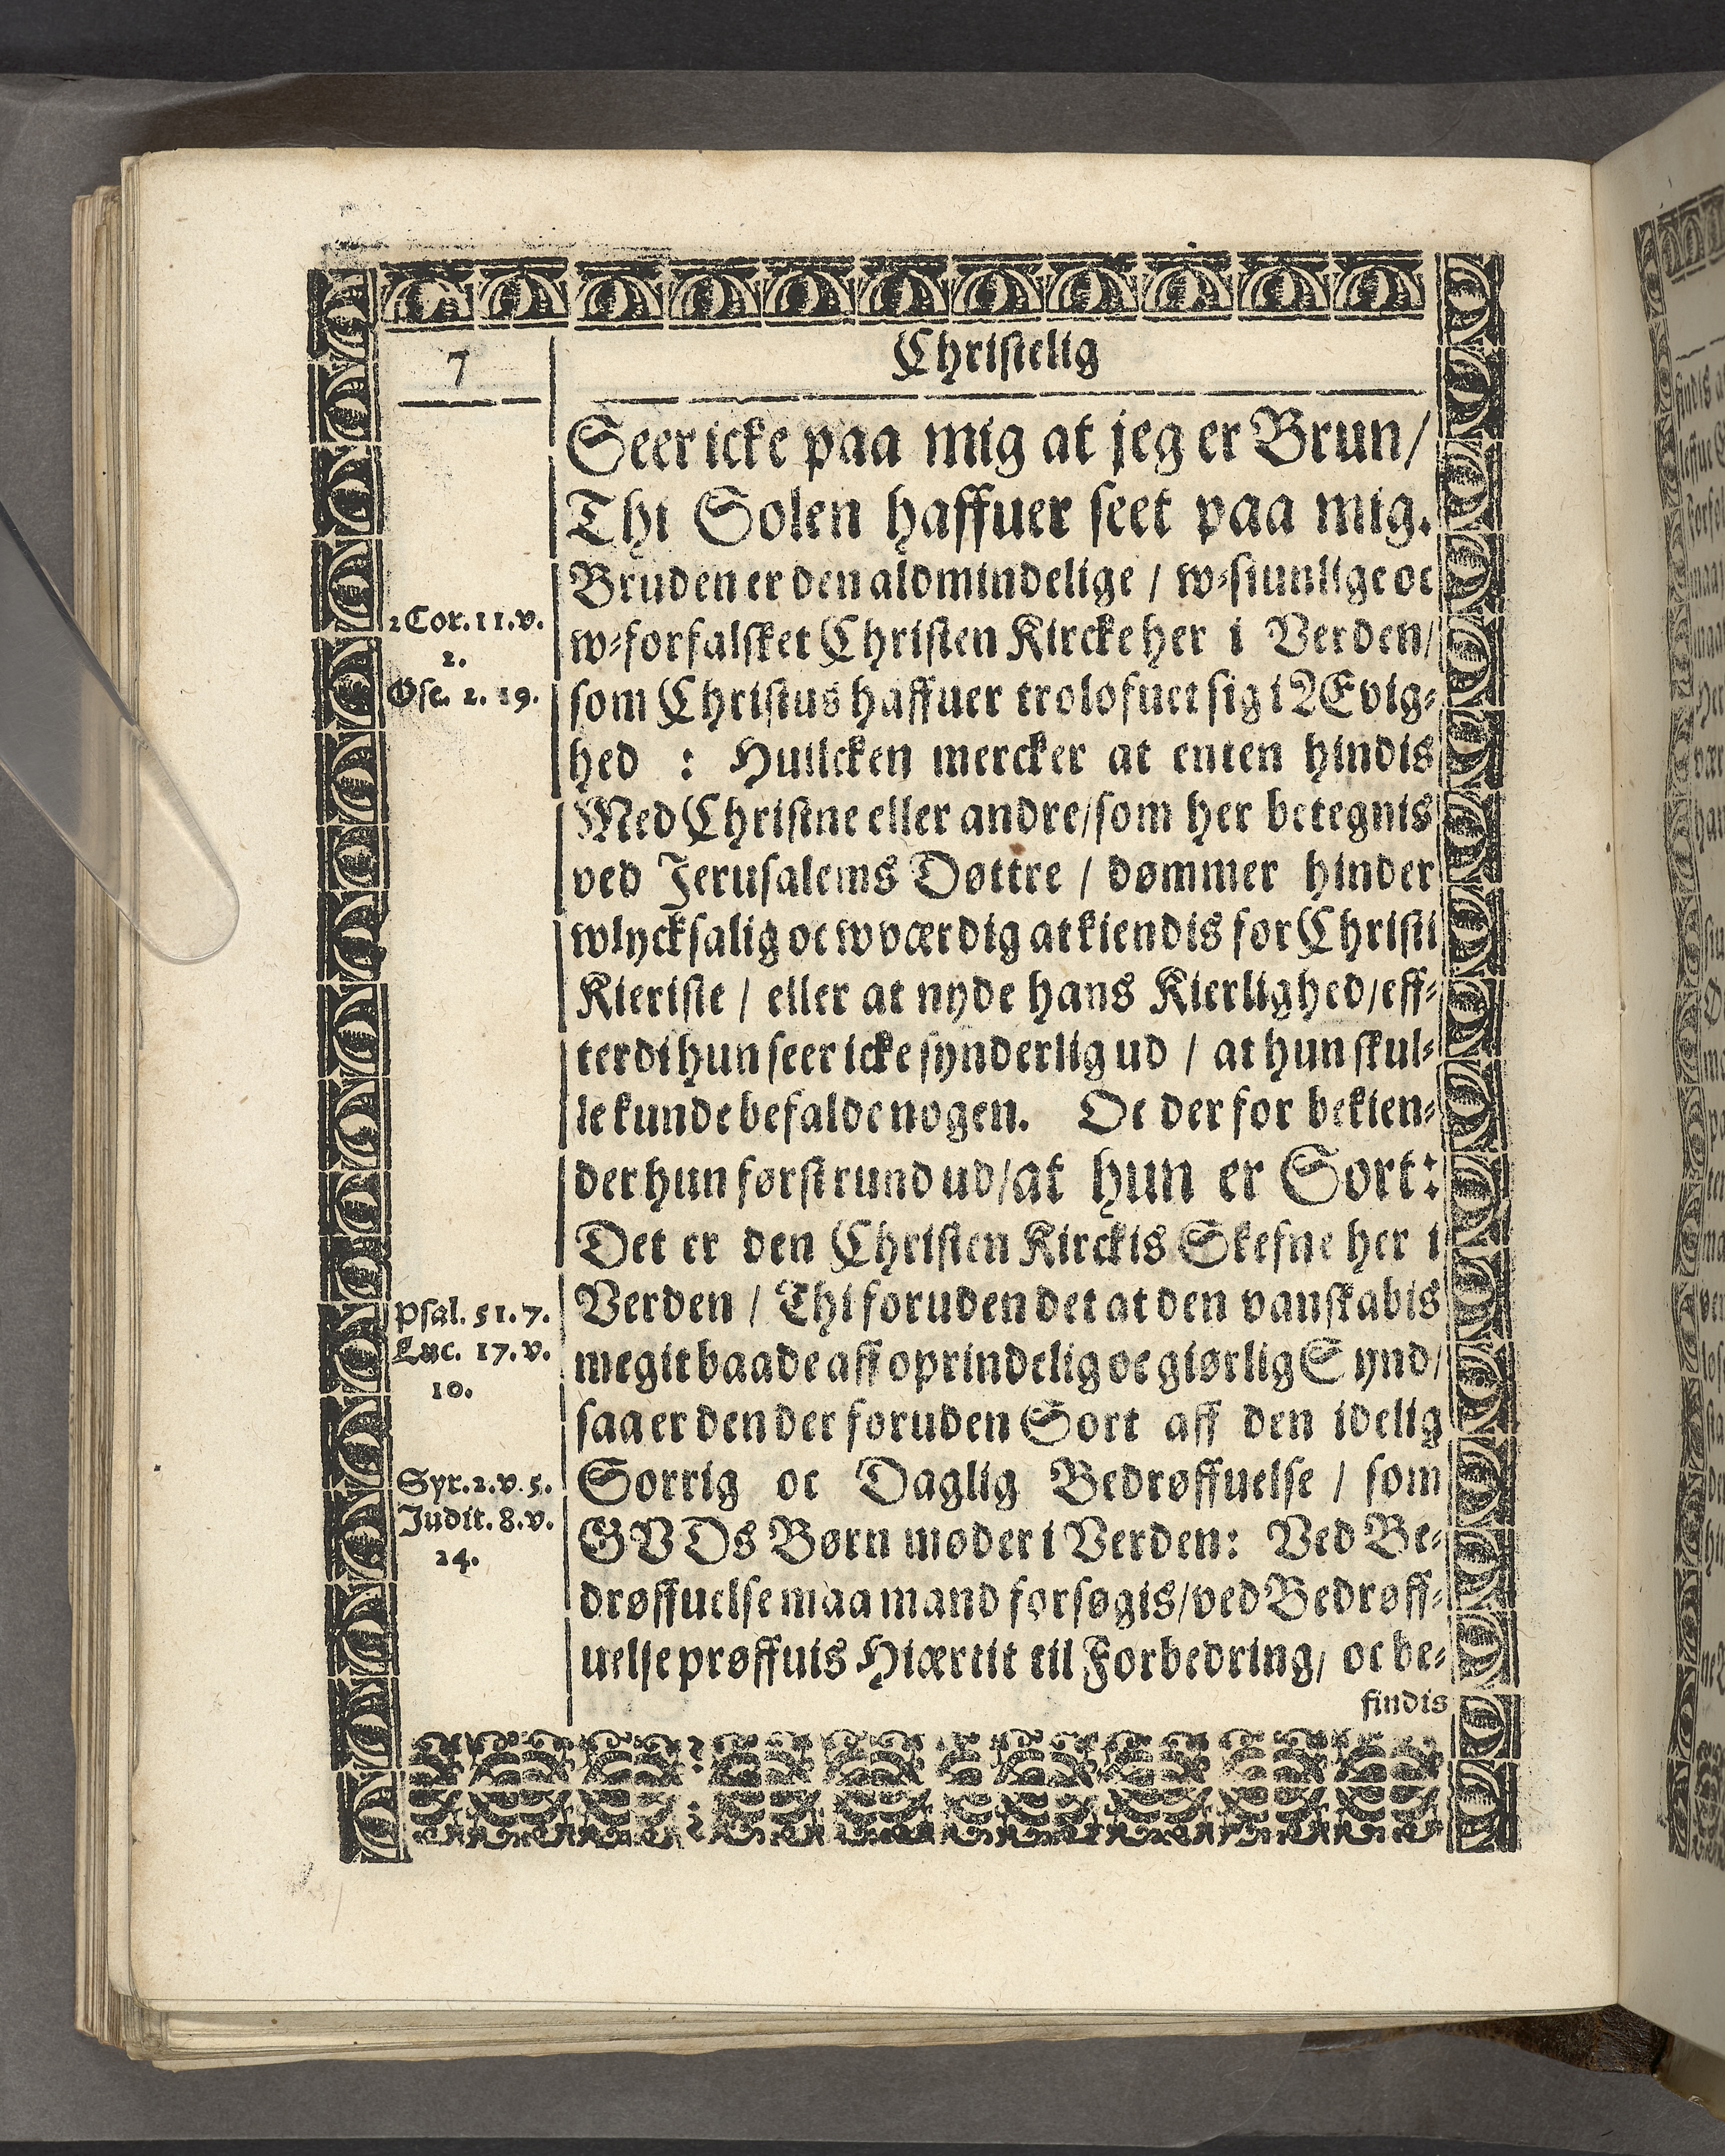 7
Christelig
Seer icke paa mig at jeg er Brun/
Thi Solen haffuer seet paa mig.
Bruden er den aldmindelige / w-siunlige oc
w-forfalsket Christen Kircke her i Verden/
som Christus haffuer trolofuet sig i ÆEvig-
hed : Huilcken mercker at enten hindis
Med Christne eller andre/som her betegnis
ved Jerusalems Døttre / dømmer hinder
wlycksalig oc wværdig at kiendis for Christi
Kieriste / eller at nyde hans Kierlighed/eff-
terdi hun seer icke synderlig ud / at hun skul-
le kunde befalde nogen. Oc der for bekien-
der hun først rund ud/at hun er Sort:
Det er den Christen Kirckis Skefne her i
Verden / Thi foruden det at den vanskabis
megit baade aff oprindelig oc giørlig Synd/
saa er den der foruden Sort aff den idelig
Sorrig oc Daglig Bedrøffuelse / som
GVDs Børn møder i Verden: Ved Be-
drøffuelse maa mand forsøgis/ved Bedrøff-
uelse prøffuis Hiærtit til Forbedring/ oc be-
findis
2 Cor. 11. v.
2.
Ose. 2. 19.
Psal. 51. 7.
Luc. 17. v.
10.
Syr. 2. v. 5.
Judit. 8. v.
24.